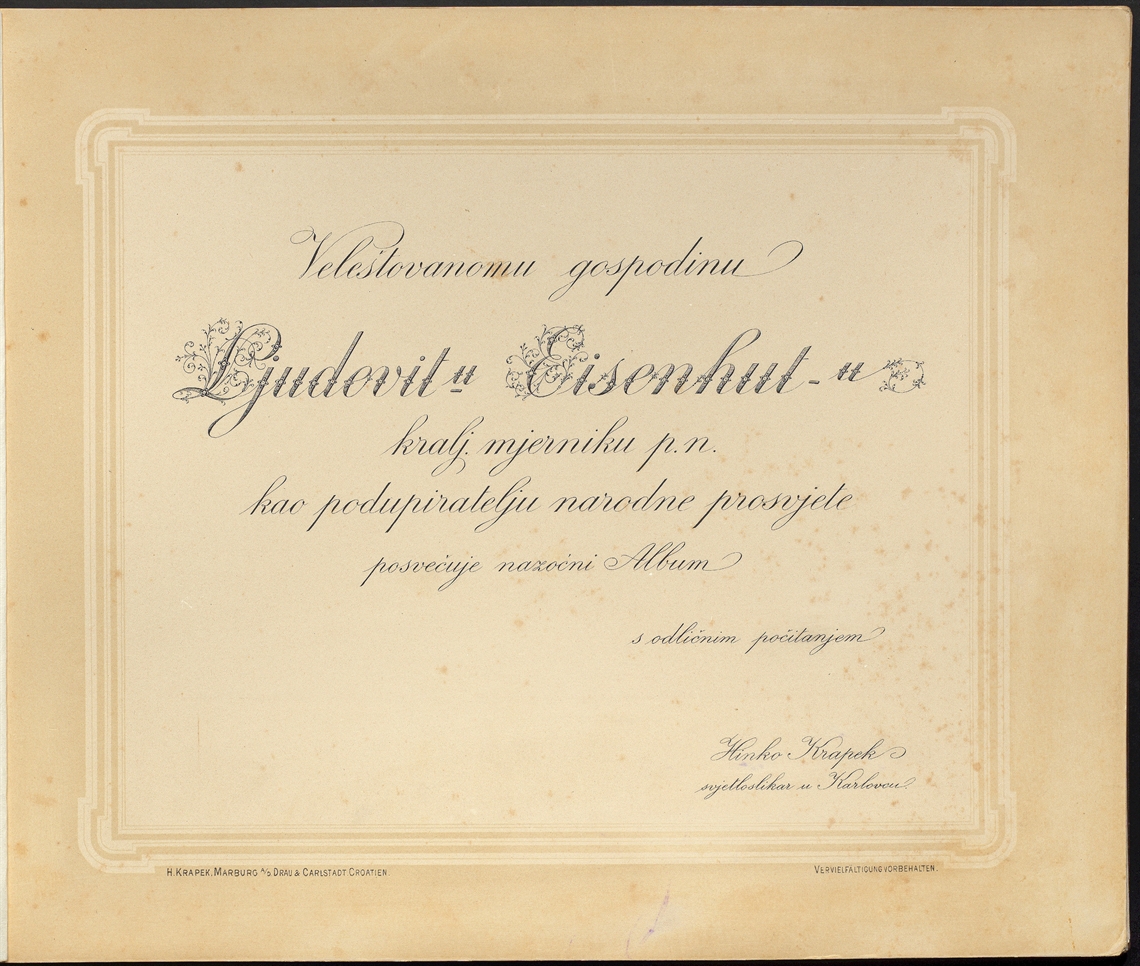 Veleštovanomu gospodinu
Ljudevitu Eisenhut-u
kralj. mjerniku p. n.
kao podupiratelju narodne prosvjete
posvećuje nazoćni Album
s odličnim počitanjem
Hinko Krapek
svjetloslikar u Karlovcu.
H. KRAPEK, MARBURG A/D DRAU & CARLSTADT CROATIEN.
VERVIELFÄLTIGUNG VORBEHALTEN.